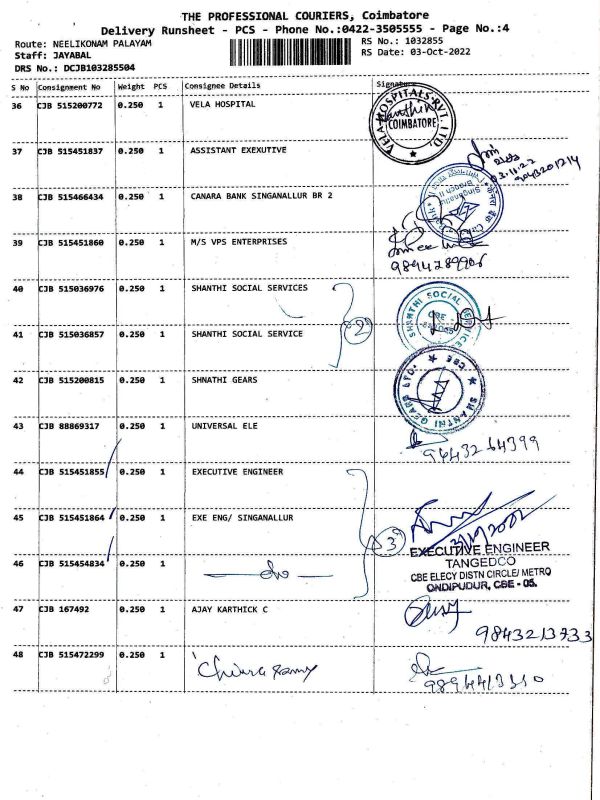 THE PROFESSIONAL COURIERS, Coimbatore
Delivery Runsheet - PCS - Phone No.:0422-3505555 - Page No.:4
Route: NEELIKONAM PALAYAM
RS No.: 1032855
Staff: JAYABAL
RS Date: 03-Oct-2022
DRS No.: DCJB103285504
S No Consignment No Weight PCS Consignee Details Signature
36 CJB 515200772 0.250 1 VELA HOSPITAL
VELA HOSPITALS PVT. LTD.
COIMBATORE
37 CJB 515451837 0.250 1 ASSISTANT EXEXUTIVE
38 CJB 515466434 0.250 1 CANARA BANK SINGANALLUR BR 2
Singanallur
Branch II
39 CJB 515451860 0.250 1 M/S VPS ENTERPRISES
9894289906
40 CJB 515036976 0.250 1 SHANTHI SOCIAL SERVICES
SHANTHI SOCIAL SERVICES
CBE
2
41 CJB 515036857 0.250 1 SHANTHI SOCIAL SERVICE
42 CJB 515200815 0.250 1 SHNATHI GEARS
SHANTHI GEARS LTD. CBE
43 CJB 88869317 0.250 1 UNIVERSAL ELE
9643264399
44 CJB 515451855 0.250 1 EXECUTIVE ENGINEER
45 CJB 515451864 0.250 1 EXE ENG/ SINGANALLUR
3
EXECUTIVE ENGINEER
46 CJB 515454834 0.250 1
do
TANGEDCO
CBE ELECY DISTN CIRCLE/ METRO
ONDIPUDUR, CBE - 05.
47 CJB 167492 0.250 1 AJAY KARTHICK C
9843213733
48 CJB 515472299 0.250 1
9894413310